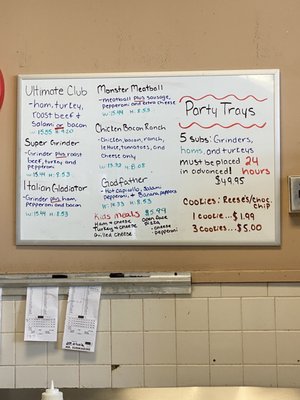 Ultimate Club
-ham, turkey,
roast beef &
Salami or bacon
Super Grinder
-Grinder plus roast
beef, turkey, and
pepperoni
Italian Gladiator
-Grinder plus ham,
pepperoni and bacon
Monster Meatball
-meatball plus sausage,
pepperoni and extra cheese
Chicken Bacon Ranch
-Chicken, bacon, ranch,
lettuce, tomatoes, and
cheese only
Godfather
-Hot capicolla, Salami,
pepperoni & banana peppers
Kids meals $5.99
Ham & cheese
Turkey & cheese
Grilled cheese
Open face
Pizza
-cheese
-pepperoni
Party Trays
5 subs: Grinders,
hams, and turkeys
must be placed 24
in advanced! hours
$49.95
Cookies: Reese's/choc.
chip
1 cookie...$1.99
3 cookies...$5.00